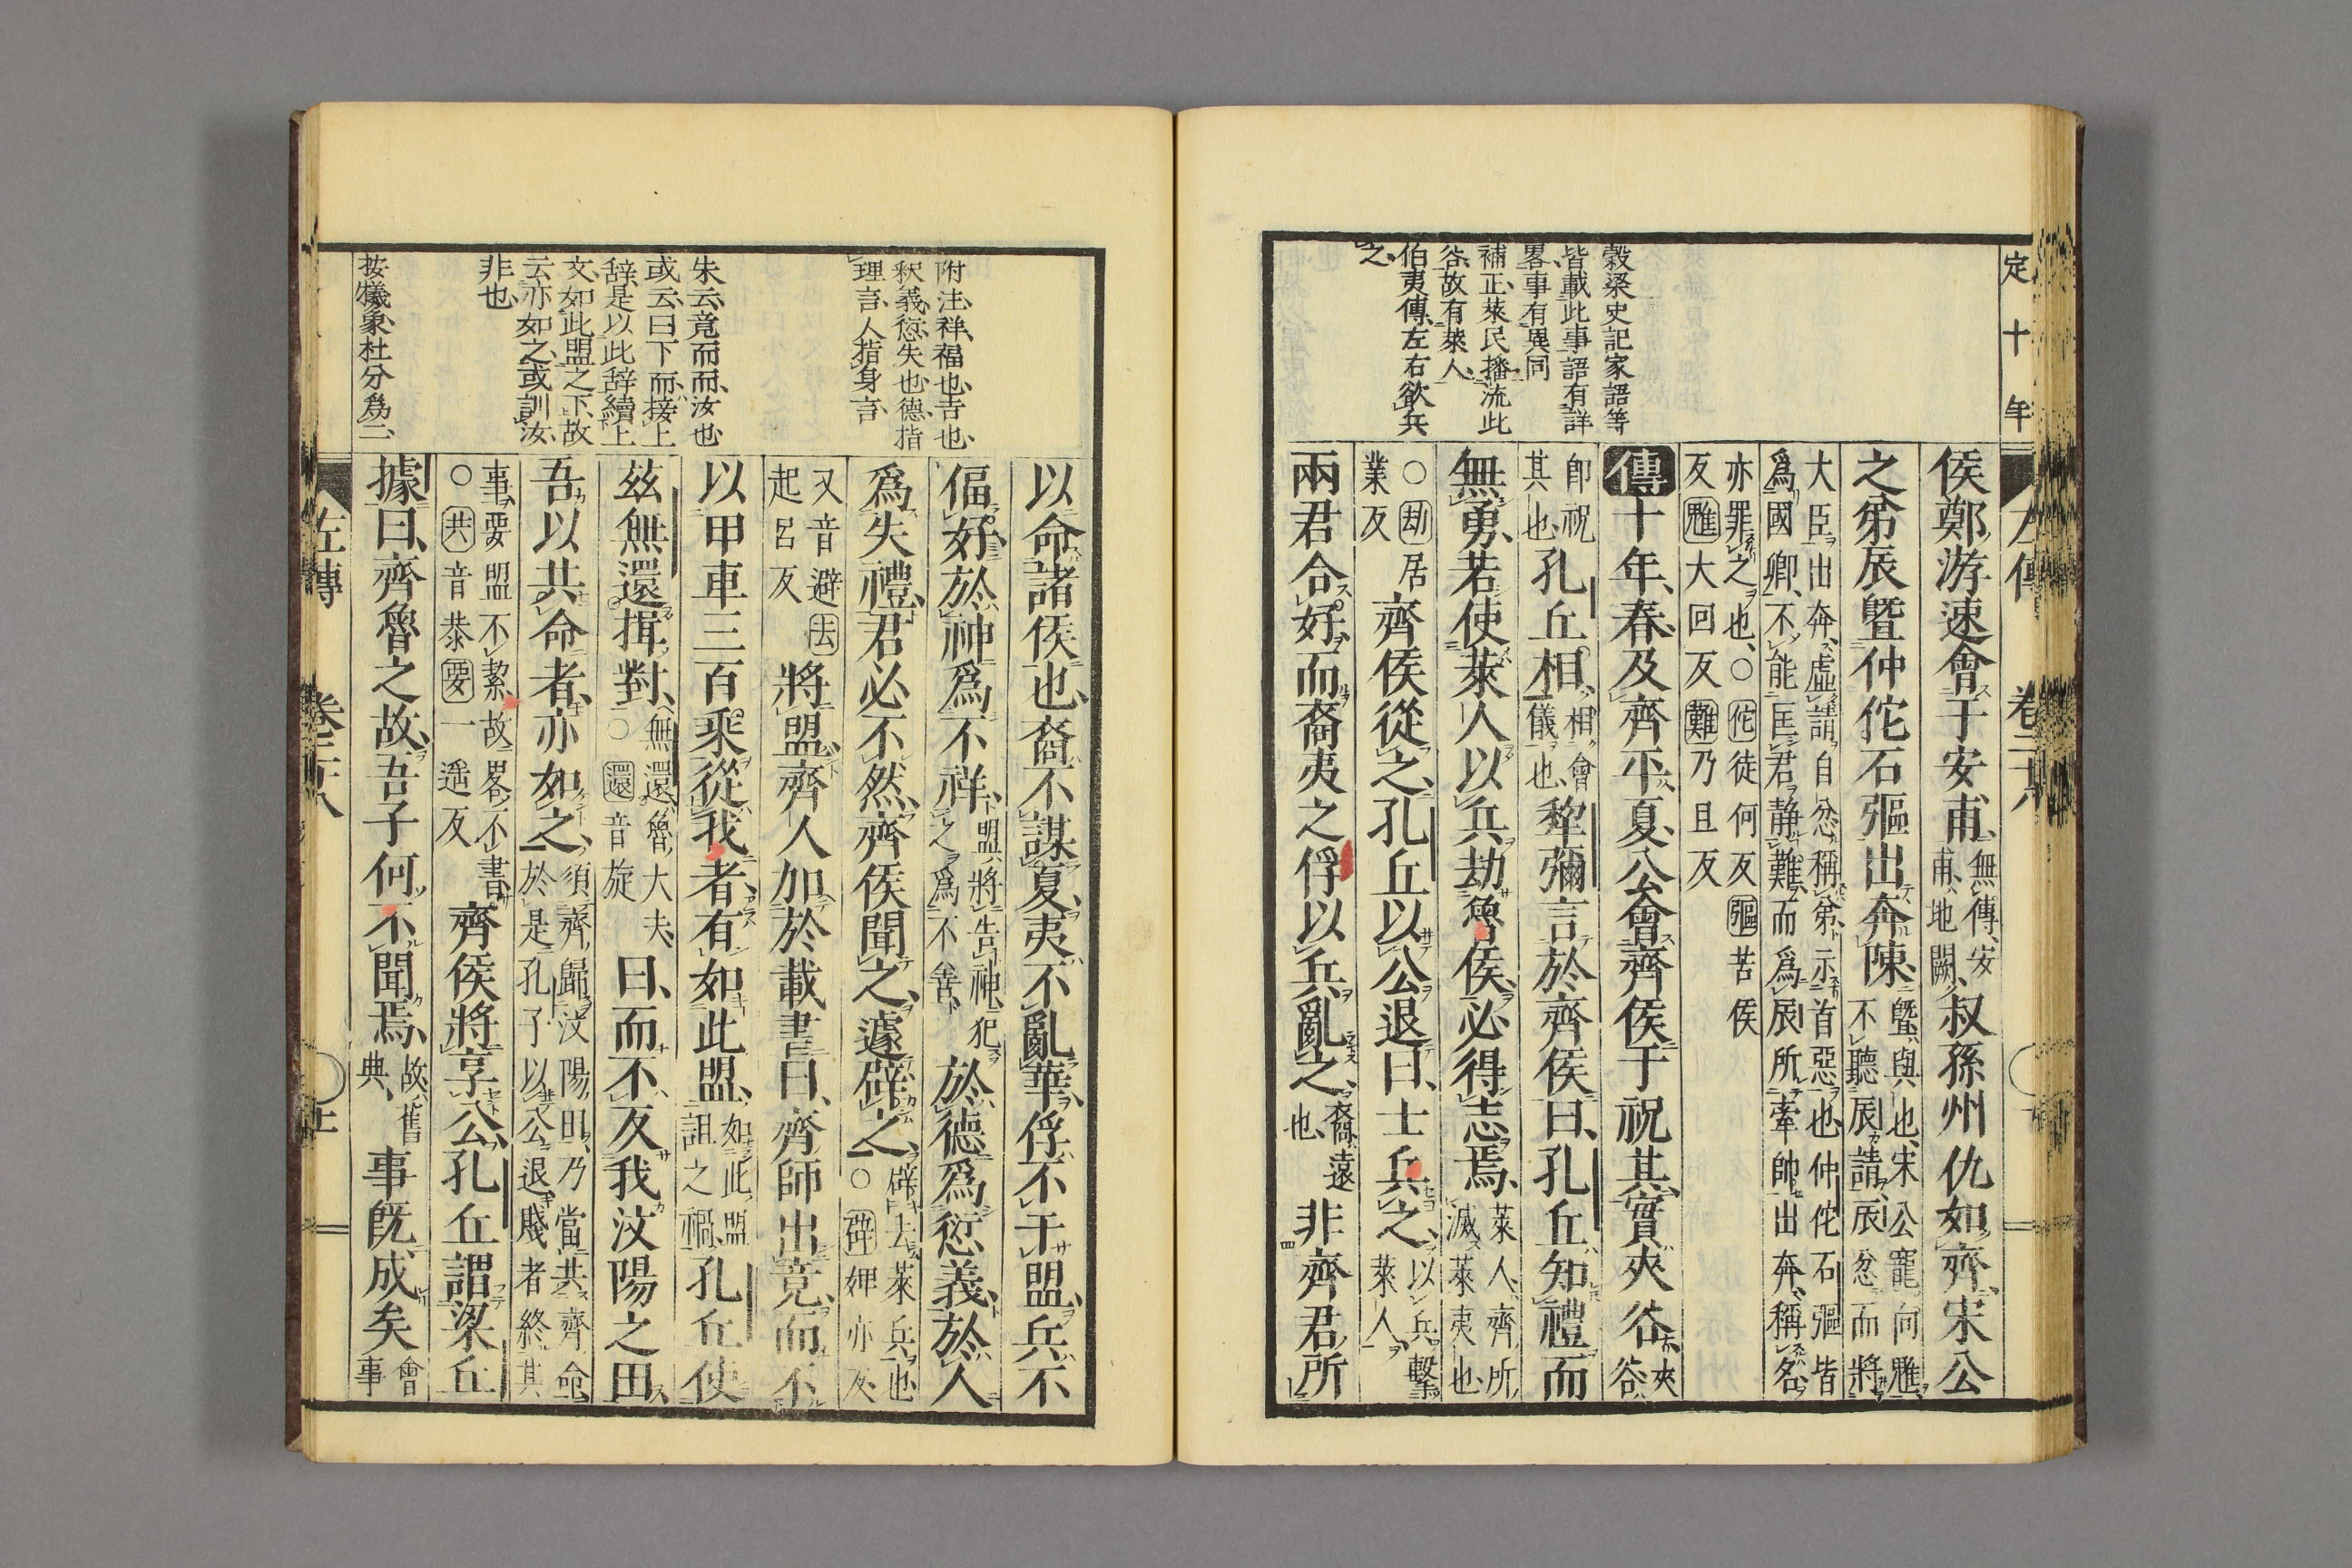 定十年
左傳 卷二十八
穀梁史記家語等
皆載此事語有詳
畧事有異同
補正萊民播流此
谷故有萊人
伯夷傳左右欲兵
之
侯鄭游速會于安甫無傳安甫地闕叔孫州仇如齊宋公
之弟辰曁仲佗石彄出奔陳曁與也宋公寵向魋不聽辰請辰忿而將
大臣出奔虛請自忿稱弟示首惡也仲佗石彄皆
爲國卿不能匡君静難而爲辰所牽帥出奔稱名
亦罪之也○佗徒何反彄苦侯
反魋大回反難乃且反
傳十年春及齊平夏公會齊侯于祝其實夾谷夾谷
卽祝其也孔丘相相會儀也犂彌言於齊侯曰孔丘知禮而
無勇若使萊人以兵劫魯侯必得志焉萊人齊所滅萊夷也
○劫居業反齊侯從之孔丘以公退曰士兵之以兵擊萊人
兩君合好而裔夷之俘以兵亂之裔遠也非齊君所
附注祥福也吉也
釈義愆失也德指
理言人指身言
朱云竟而而汝也
或云曰下而接上
辞是以此辞續上
文如此盟之下故
云亦如之或訓汝
非也
按犧象杜分爲二
以命諸侯也裔不謀夏夷不亂華俘不干盟兵不
偪好於神爲不祥盟將告神犯之爲不善於德爲愆義於人
爲失禮君必不然齊侯聞之遽辟之辟去萊兵也○辟婢亦反
又音避去起呂反將盟齊人加於載書曰齊師出竟而不
以甲車三百乘從我者有如此盟如此盟詛之禍孔丘使
玆無還揖對無還魯大夫○還音旋曰而不反我汶陽之田
吾以共命者亦如之須齊歸汶陽田乃當共齊命於是孔子以公退賤者終其
事要盟不絜故畧不書○共音恭要一遥反齊侯將享公孔丘謂梁丘
據曰齊魯之故吾子何不聞焉故舊典事旣成矣會事
左傳 卷二十八